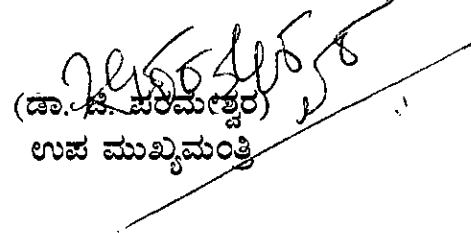 (ಡಾ. ಜಿ. ಪರಮೇಶ್ವರ)
ಉಪ ಮುಖ್ಯಮಂತ್ರಿ